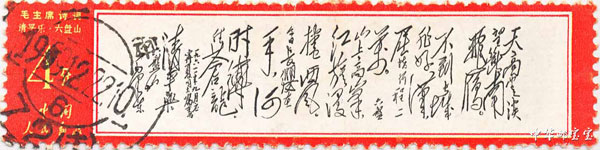 毛主席诗词
清平乐·六盘山
4分
中国
人民邮政
天高云淡
望断南
飞雁
不到长城
非好汉
屈指行程二
万 六盘
山上高峰
红旗漫
卷西风
今日长缨在
手何
时缚
住苍龙
清平乐
毛泽东